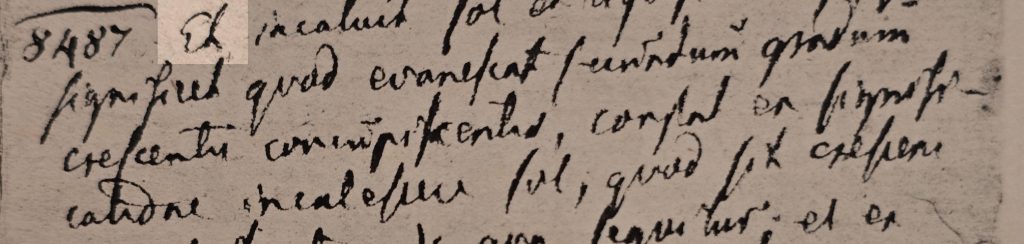 8487 Et incaluit sol et
significet quod evanescat secundum gradum
crescentis concupiscentiae, constat ex signifi-
catione incalescere sol, quod sit crescens
sequitur; et ex